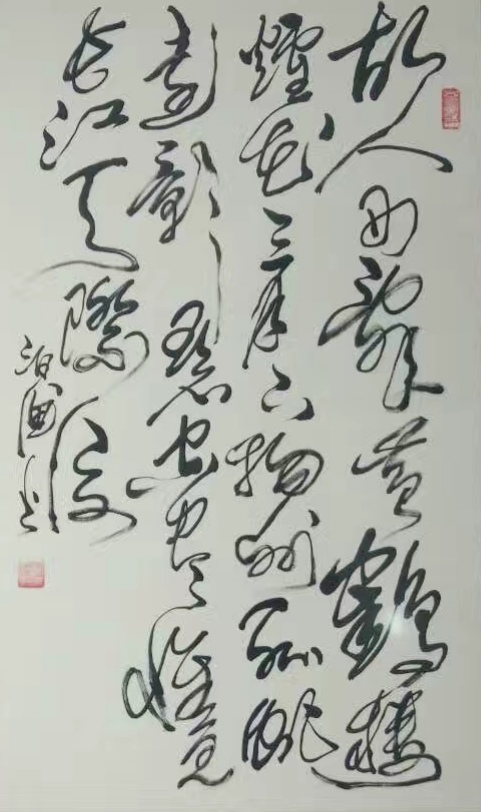 故人西辭黃鶴樓
煙花三月下揚州孤帆
遠影碧空盡惟見
長江天際流